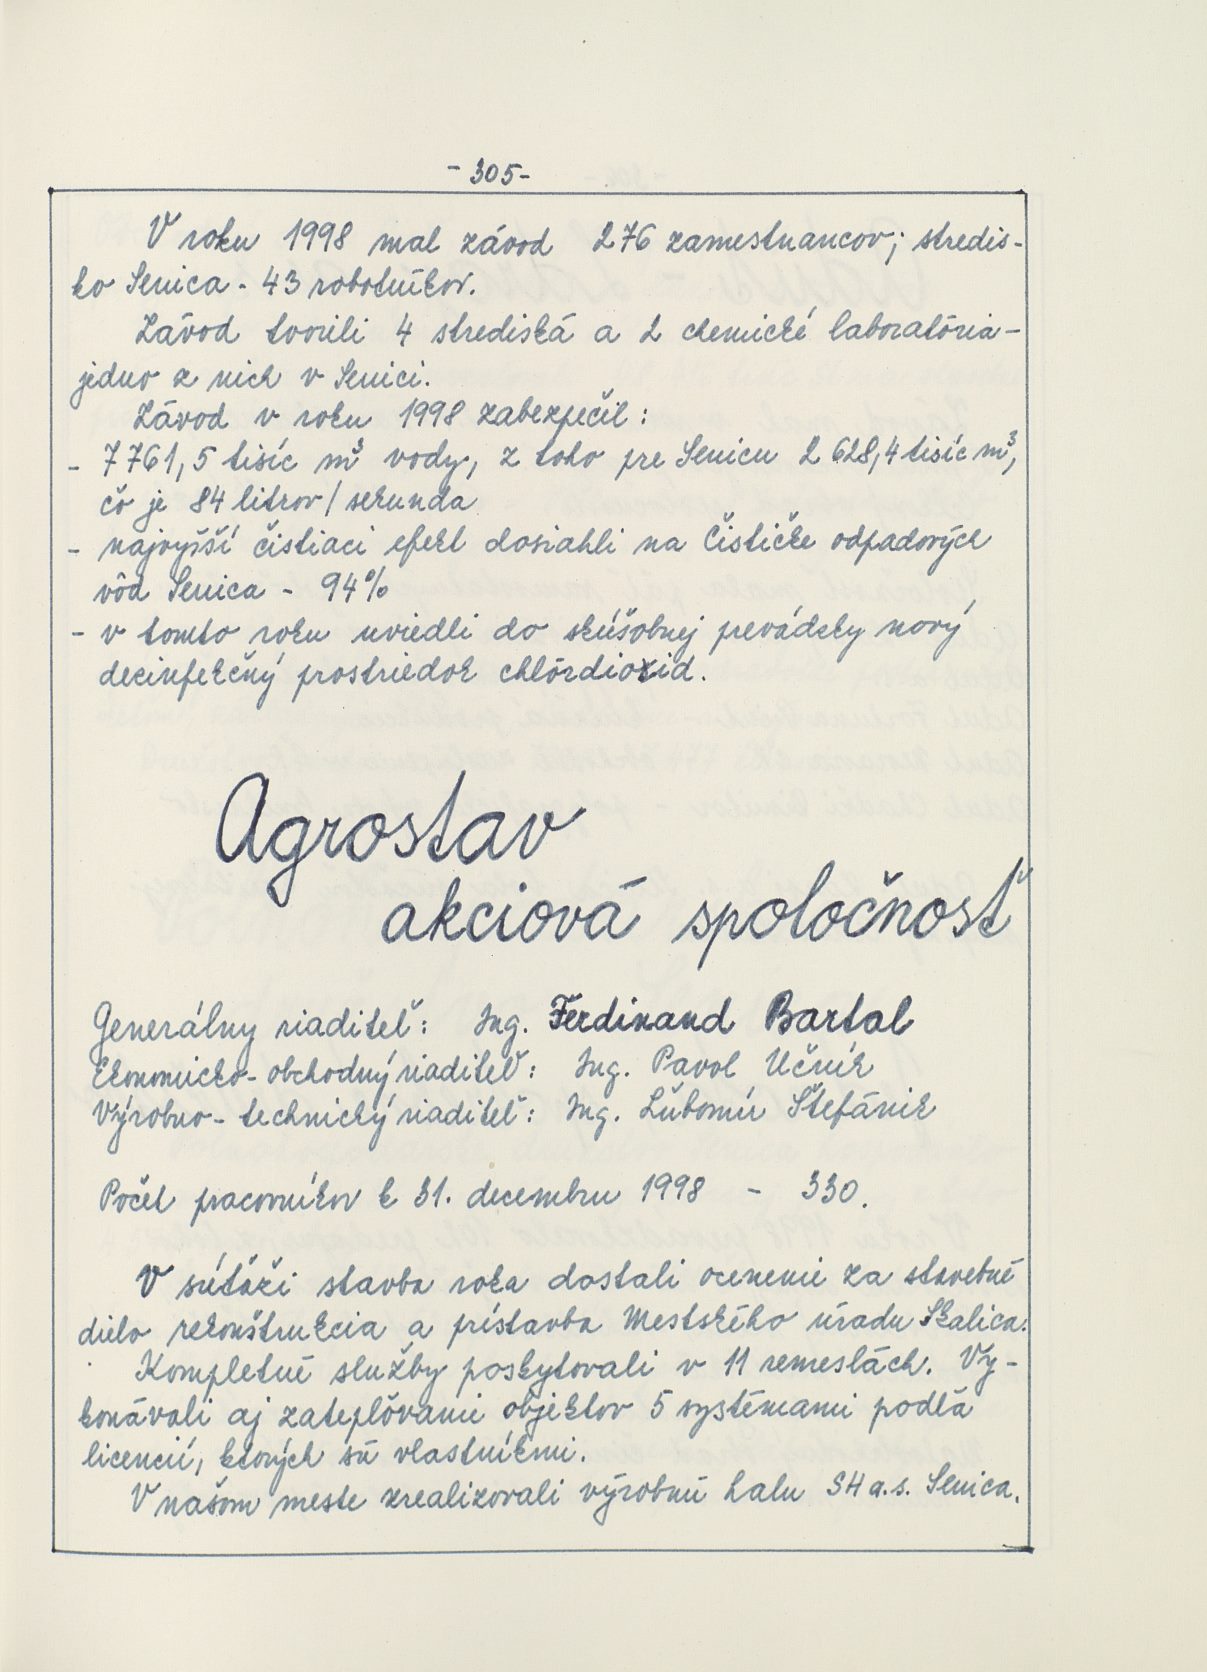 - 305 -
V roku 1998 mal závod 276 zamestnancov; stredis-
ko Senica - 43 robotníkov.
Závod tvorili 4 strediská a 2 chemické laboratória -
jedno z nich v Senici.
Závod v roku 1998 zabezpečil:
- 7 761,5 tisíc m³ vody, z toho pre Senicu 2 628,4 tisíc m³,
čo je 84 litrov / sekunda
- najvyšší čistiaci efekt dosiahli na Čističke odpadových
vôd Senica - 94%
- v tomto roku uviedli do skúšobnej prevádzky nový
decinfekčný prostriedok chlórdioxid.
Agrostav
akciová spoločnosť
Generálny riaditeľ: Ing. Ferdinand Bartal
Ekonomicko-obchodný riaditeľ: Ing. Pavol Učník
Výrobno-technický riaditeľ: Ing. Ľubomír Štefánik
Počet pracovníkov k 31. decembru 1998 - 330.
V súťaži stavba roka dostali ocenenie za stavebné
dielo rekonštrukcia a prístavba Mestského úradu Skalica.
Kompletné služby poskytovali v 11 remeslách. Vy-
konávali aj zateplôvanie objektov 5 systémami podľa
licencií, ktorých sú vlastníkmi.
V našom meste zrealizovali výrobnú halu SH a.s. Senica.